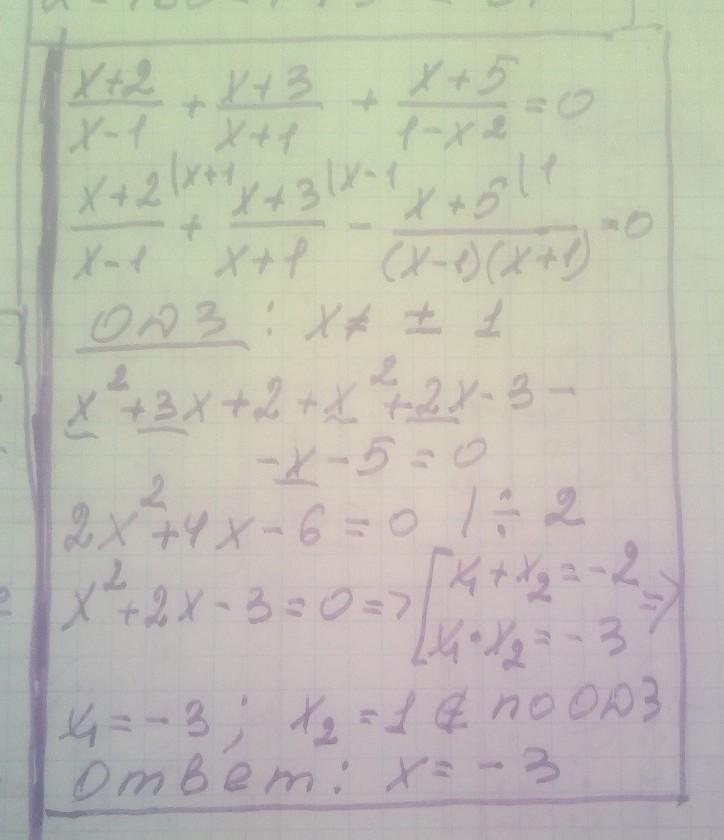 x+2/x-1 + x+3/x+1 + x+5/1-x2 = 0
x+2|x+1/x-1 + x+3|x-1/x+1 - x+5|1/(x-1)(x+1) = 0
ОДЗ : x ≠ ± 1
x²+3x+2+x²+2x-3-
-x-5=0
2x²+4x-6=0 | ÷ 2
x²+2x-3=0 => [x₁+x₂=-2 =>
x₁·x₂=-3
x₁=-3; x₂=1 ∉ по ОДЗ
Ответ: x=-3